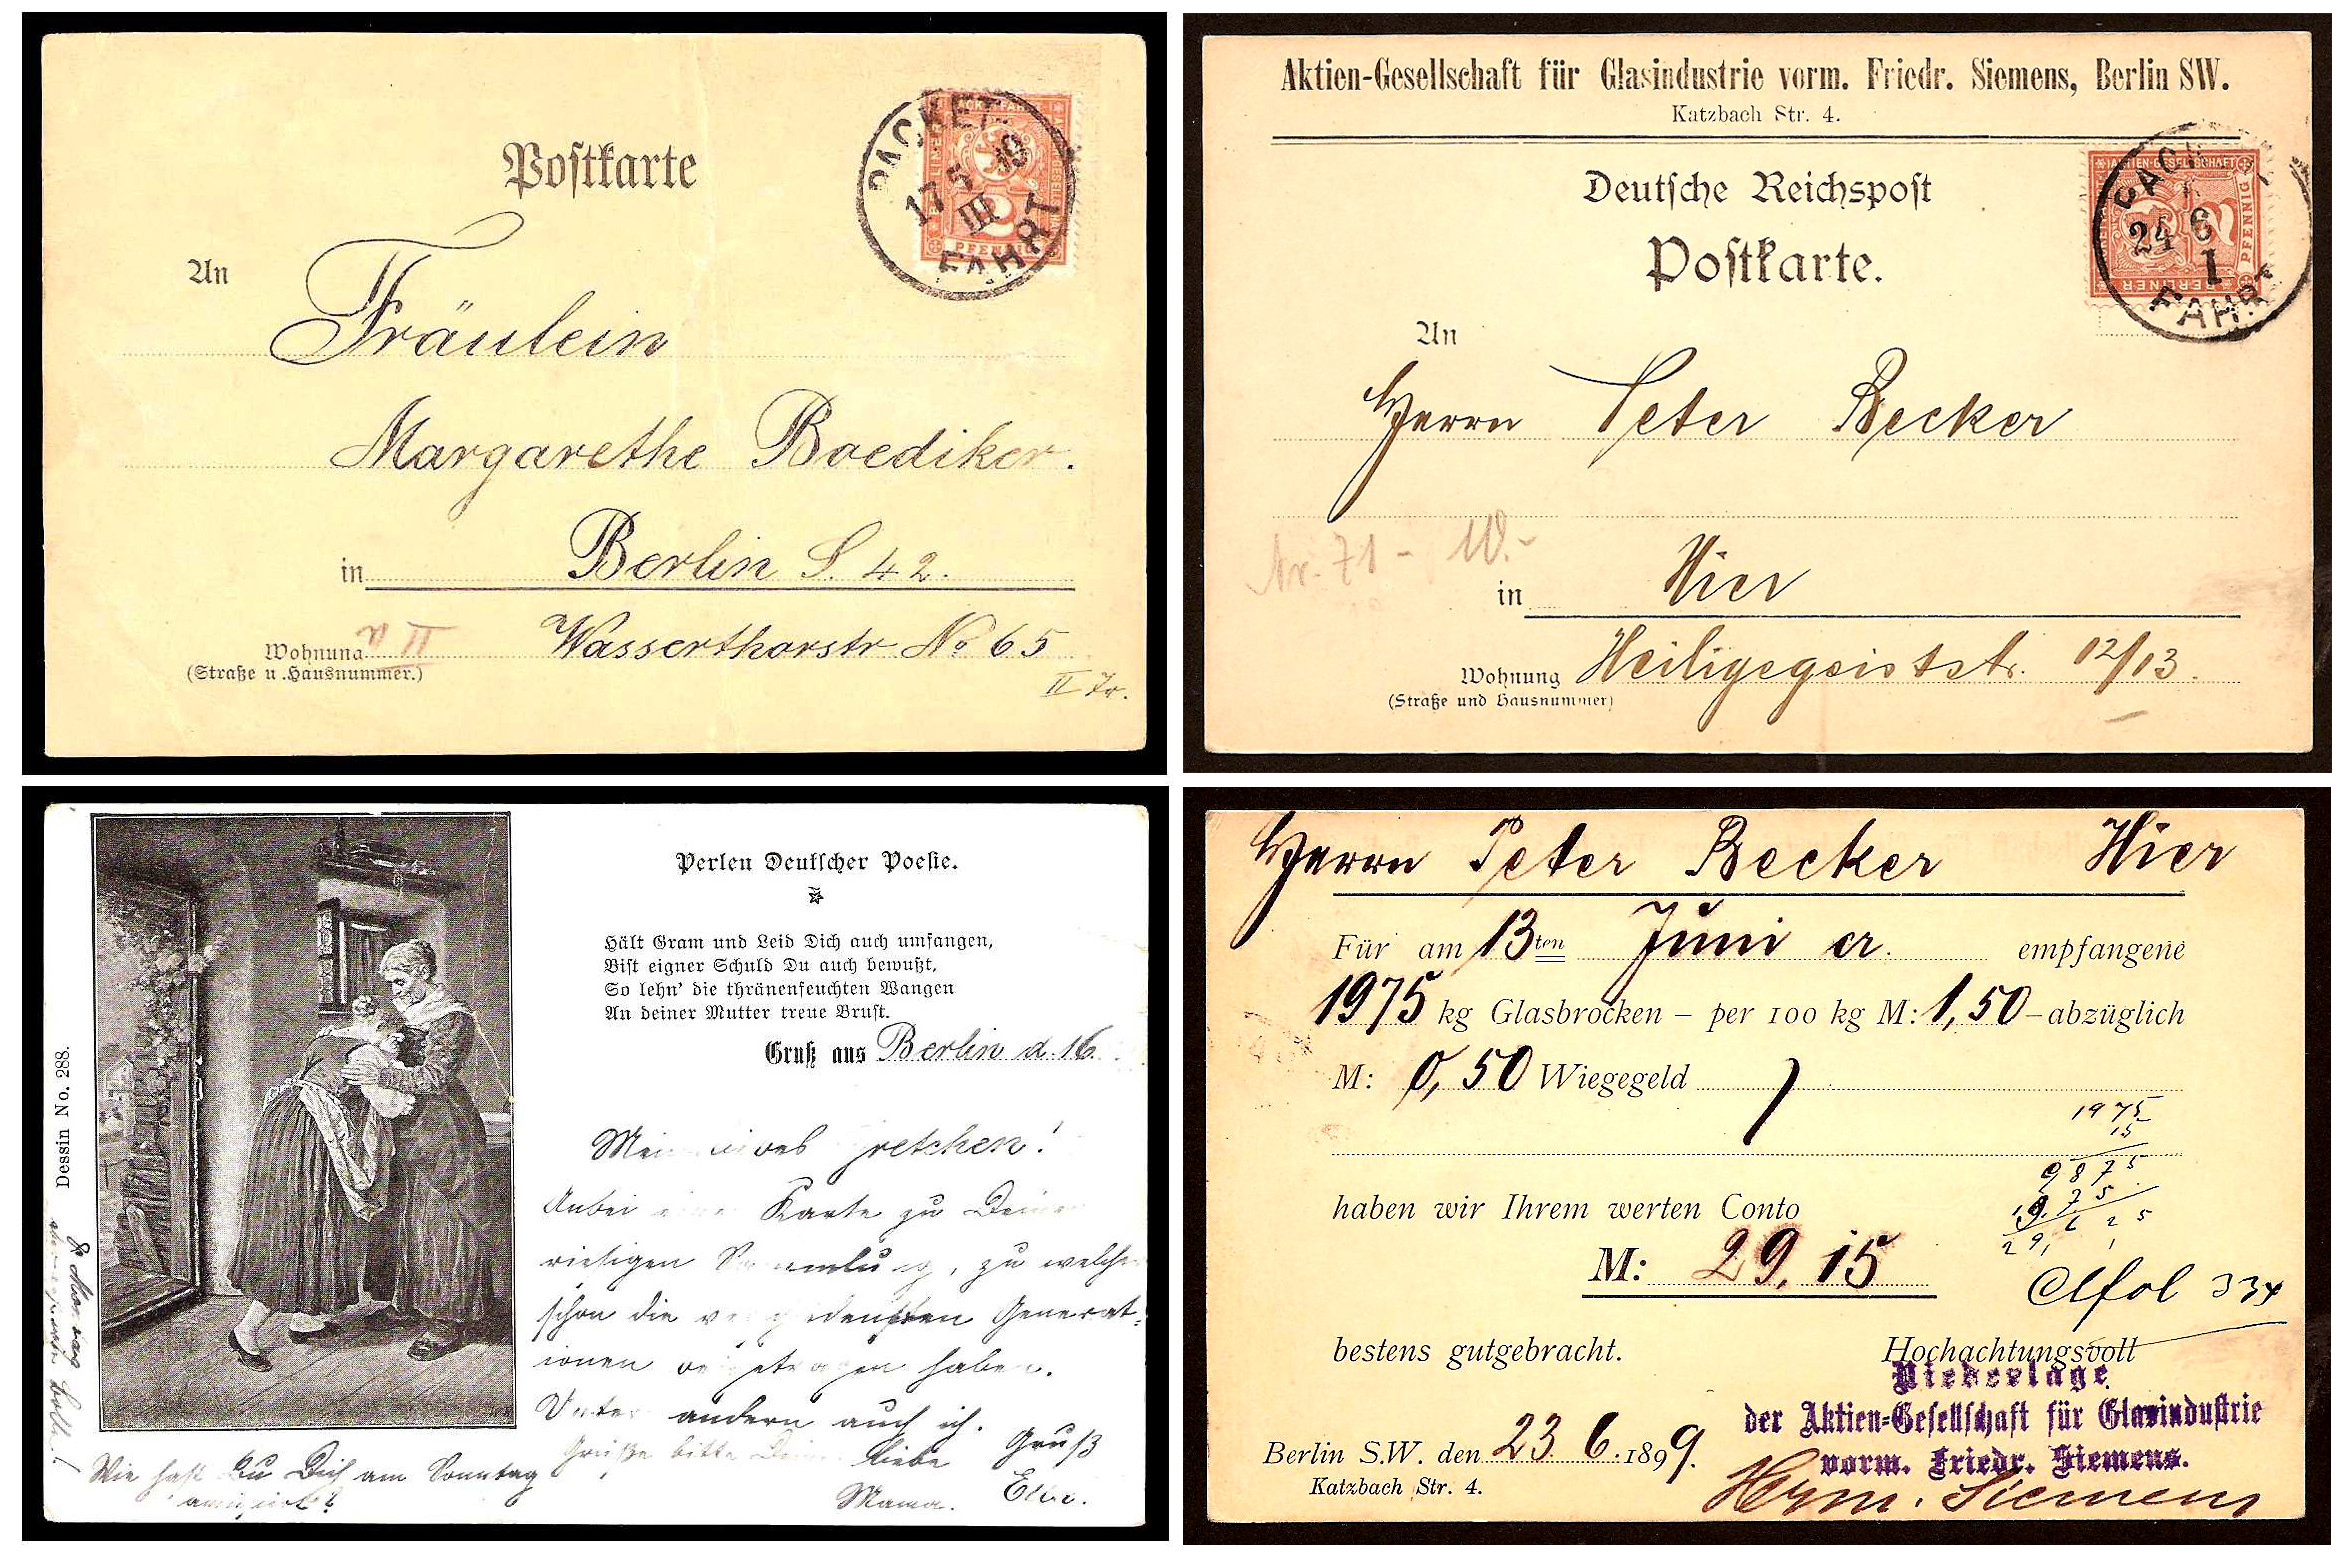 Postkarte
PACKET-
17 5 99
III
FAHRT
PFENNIG
An
Fräulein
Margarethe Boediker.
in Berlin S. 42.
Wohnung Wasserthorstr. No 65
(Straße u. Hausnummer.)
II Tr.
Aktien-Gesellschaft für Glasindustrie vorm. Friedr. Siemens, Berlin SW.
Katzbach Str. 4.
Deutsche Reichspost
Postkarte.
AKTIEN-GESELLSCHAFT
PFENNIG
BERLINER
24 6
1
FAHRT
An
Herrn Peter Becker
Nr. 71 - 10.-
in Hier
Wohnung Heiligegeiststr. 12/13.
(Straße und Hausnummer)
Dessin No. 288.
Perlen Deutscher Poesie.
Hält Gram und Leid Dich auch umfangen,
Bist eigner Schuld Du auch bewußt,
So lehn' die thränenfeuchten Wangen
An deiner Mutter treue Brust.
Gruß aus Berlin d. 16.
Anbei Karte zu Deiner
riesigen, zu welcher
schon die Generat-
ionen haben.
Unter andern auch ich. Gruß
Grüße bitte Deine liebe
Mama.
Wie hast Du Dich am Sonntag
Herrn Peter Becker Hier
Für am 13ten Juni cr. empfangene
1975 kg Glasbrocken – per 100 kg M: 1,50 – abzüglich
M: 0,50 Wiegegeld
1975
15
9875
1975
29,625
haben wir Ihrem werten Conto
M: 29,15
bestens gutgebracht.
Hochachtungsvoll
Niederlage
der Aktien-Gesellschaft für Glasindustrie
vorm. Friedr. Siemens.
Berlin S.W. den 23. 6. 1899.
Katzbach Str. 4.
Siemens